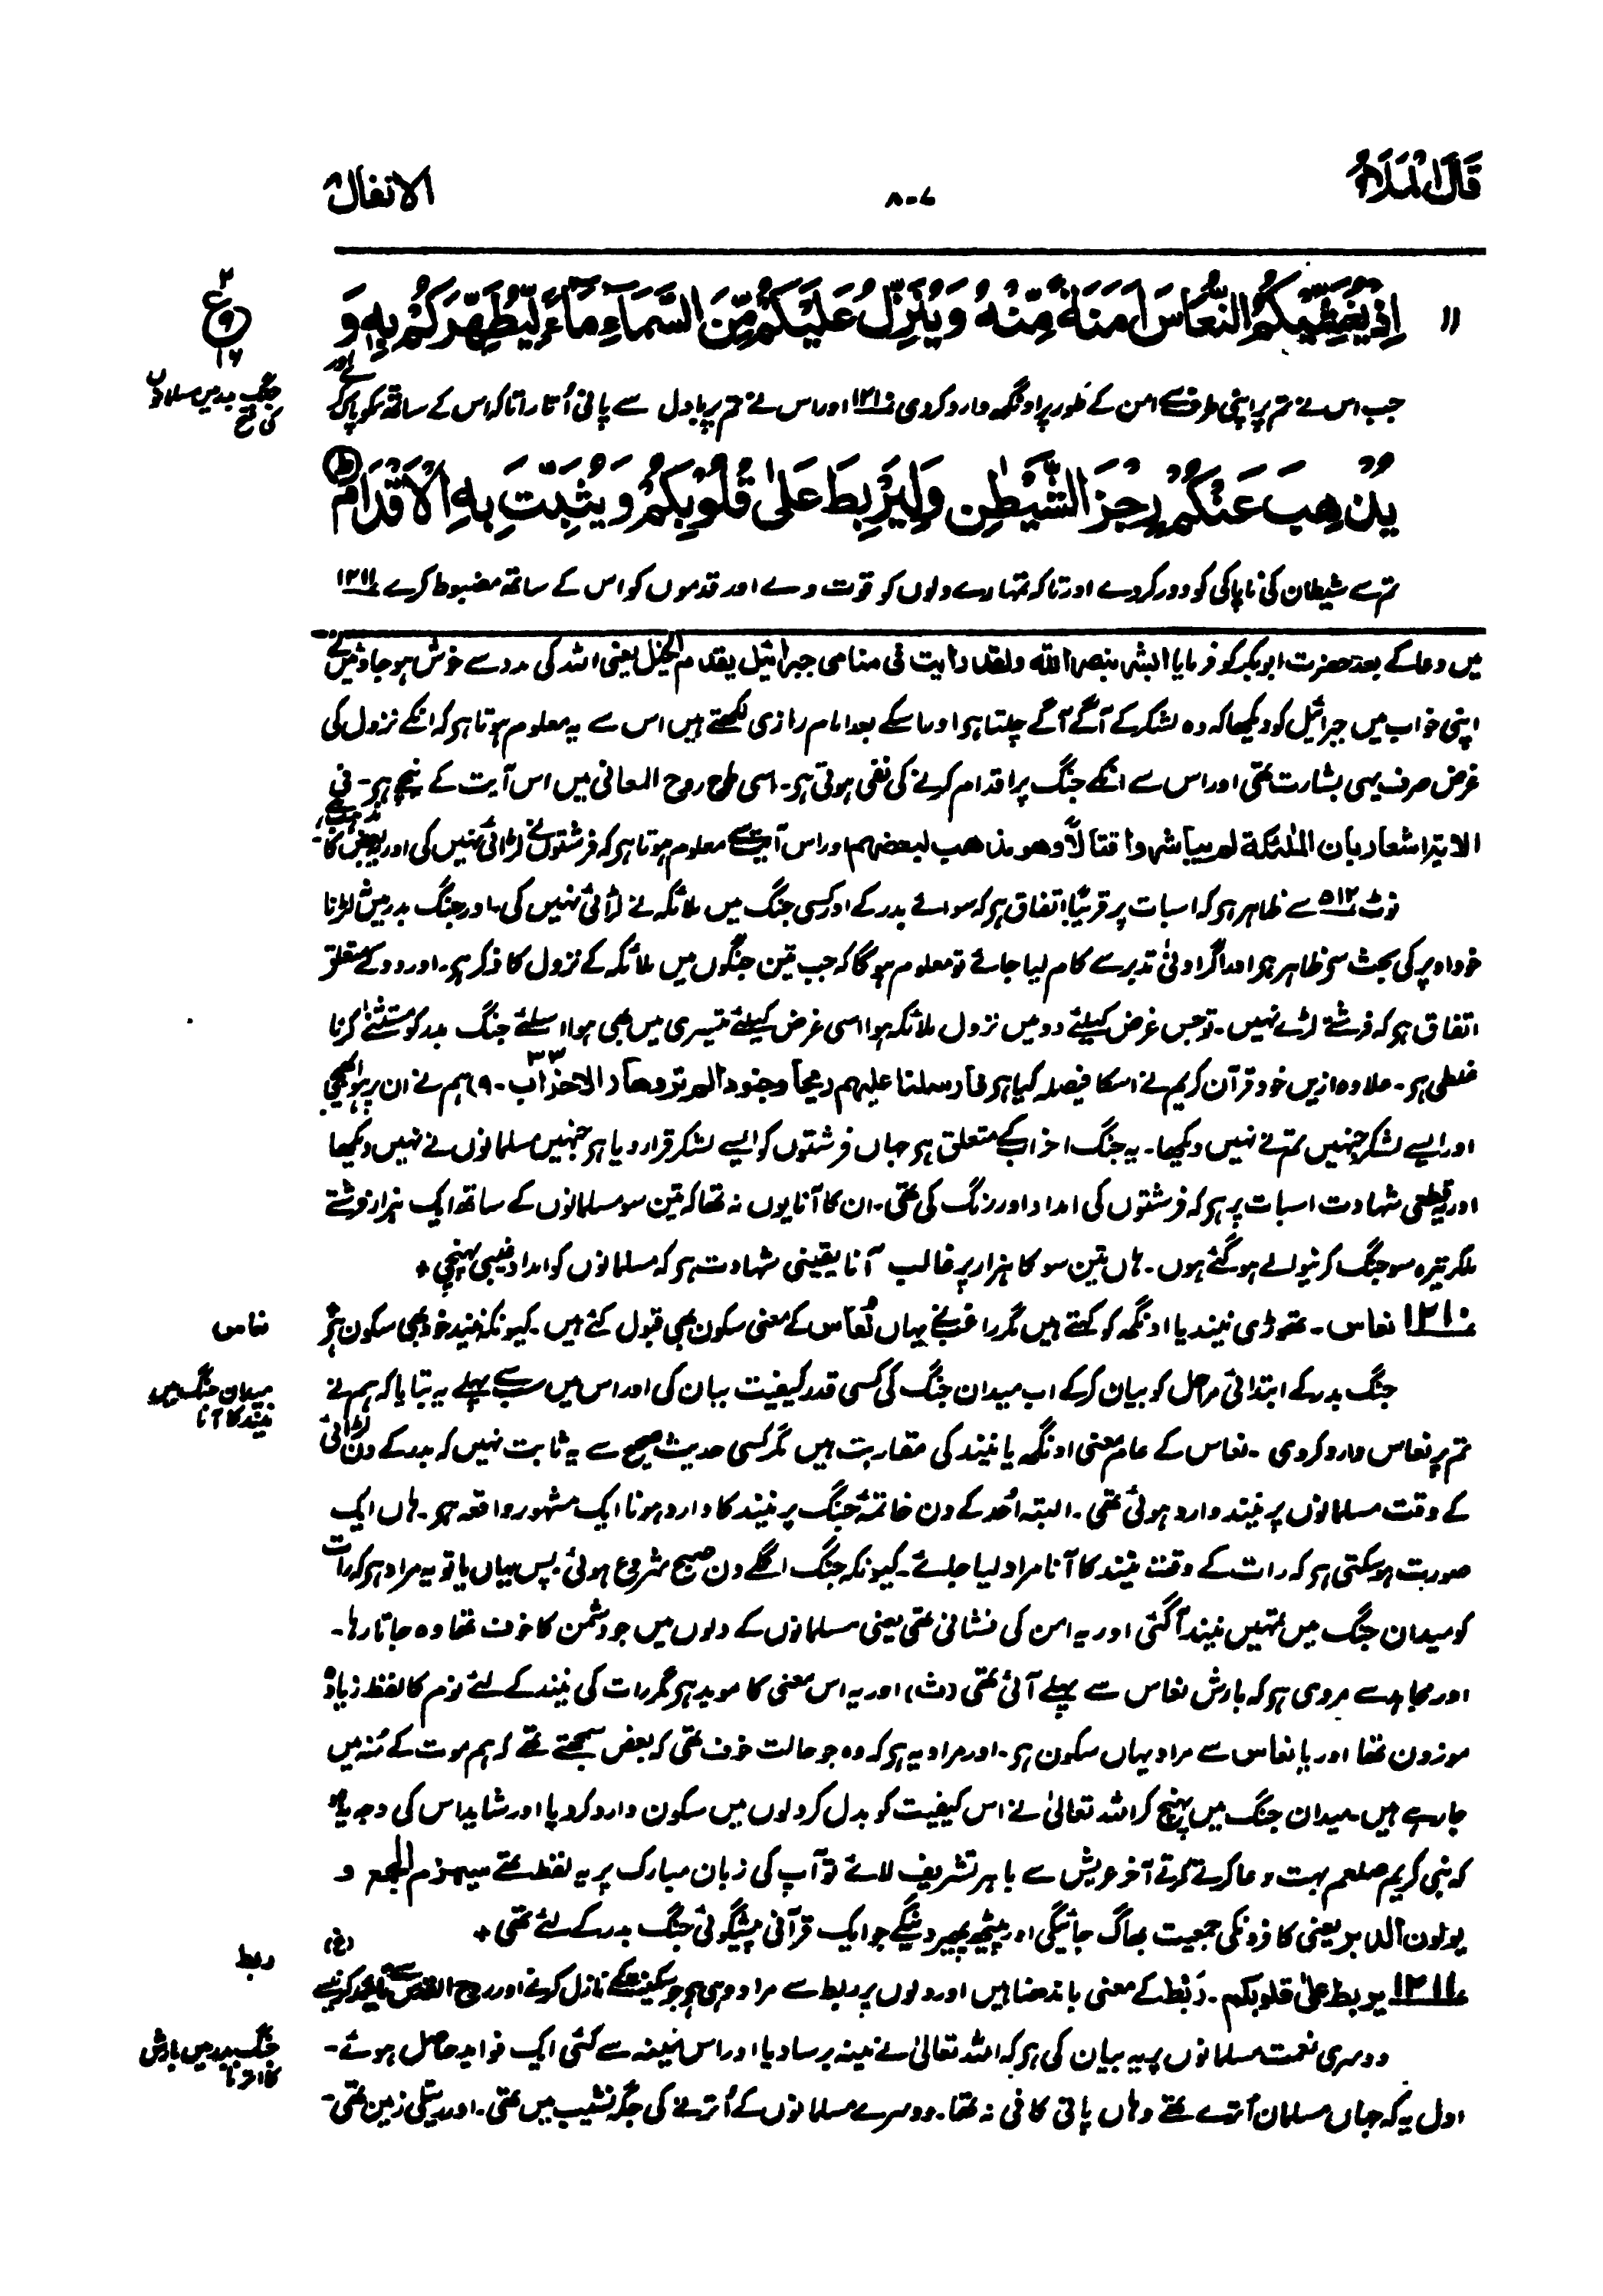 قَالَ الْمَلَاُ
۸۰۷
الانفال
۱۱ اِذْ یُغَشِّیْکُمُ النُّعَاسَ اَمَنَةً مِّنْهُ وَیُنَزِّلُ عَلَیْکُمْ مِّنَ السَّمَآءِ مَآءً لِّیُطَهِّرَکُمْ بِهٖ وَ
۲
ع
۱۶
جب اس نے تم پر اپنی طرف سے امن کے طور پر اونگھ وارد کردی ۱۲۱۰ اور اس نے تم پر بادل سے پانی اُتارا تاکہ اس کے ساتھ تمکو پاک کرے اور
جنگ بدر میں مسلمانوں
کی فتح
یُذْهِبَ عَنْکُمْ رِجْزَ الشَّیْطٰنِ وَلِیَرْبِطَ عَلٰی قُلُوْبِکُمْ وَیُثَبِّتَ بِهِ الْاَقْدَامَ ؕ
تم سے شیطان کی ناپاکی کو دور کردے اور تاکہ تمہارے دلوں کو قوت دے اور قدموں کو اس کے ساتھ مضبوط کرے ۱۲۱۱
میں دعا کے بعد حضرت ابوبکر کو فرمایا ابشر بنصر اللہ ولقد رایت فی منامی جبرائیل یقدم الخیل یعنی اللہ کی مدد سے خوش ہو جاؤ میں نے
اپنی خواب میں جبرائیل کو دیکھا کہ وہ لشکر کے آگے آگے چلتا ہر اور اسکے بعد امام رازی لکھتے ہیں اس سے یہ معلوم ہوتا ہر کہ انکے نزول کی
غرض صرف یہی بشارت تھی اور اس سے انکے جنگ پر اقدام کرنے کی نفی ہوتی ہر۔ اسی طرح روح المعانی میں اس آیت کے نیچے ہر۔ فی
الایۃ اشعار بان الملٰئکۃ لم یباشروا قتالاً وھو مذھب لبعضھم اور اس آیت سے معلوم ہوتا ہر کہ فرشتوں نے لڑائی نہیں کی اور بعض کا مذہب ہے۔
نوٹ ۵۱۲ سے ظاہر ہر کہ اسبات پر قریبًا اتفاق ہر کہ سوائے بدر کے اور کسی جنگ میں ملائکہ نے لڑائی نہیں کی۔ اور جنگ بدر میں لڑنا
خود اوپر کی بحث سے ظاہر ہر اور اگر ادنیٰ تدبر سے کام لیا جائے تو معلوم ہو گا کہ جب تین جنگوں میں ملائکہ کے نزول کا ذکر ہر۔ اور دو کے متعلق
اتفاق ہر کہ فرشتے لڑے نہیں۔ توجس غرض کیلئے دو میں نزول ملائکہ ہوا اسی غرض کیلئے تیسری میں بھی ہوا اسلئے جنگ بدر کو مستثنیٰ کرنا
غلطی ہر۔ علاوہ ازیں خود قرآن کریم نے اسکا فیصلہ کیا ہر فارسلنا علیہم ریحاً وجنوداً لم تروھا (الاحزاب۔ ۹) ہم نے ان پر ہوا بھیجی
اور ایسے لشکر جنہیں تم نے نہیں دیکھا۔ یہ جنگ احزاب کے متعلق ہر جہاں فرشتوں کو ایسے لشکر قرار دیا ہر جنہیں مسلمانوں نے نہیں دیکھا
اور یہ قطعی شہادت اسبات پر ہر کہ فرشتوں کی امداد اور رنگ کی تھی۔ ان کا آنا یوں نہ تھا کہ تین سو مسلمانوں کے ساتھ ایک ہزار فرشتے
ملکر تیرہ سو جنگ کرنیوالے ہو گئے ہوں۔ ہاں تین سو کا ہزار پر غالب آنا یقینی شہادت ہر کہ مسلمانوں کو امداد غیبی پہنچی +
۱۲۱۰ نعاس۔ تھوڑی نیند یا اونگھ کو کہتے ہیں مگر راغب نے یہاں نُعاس کے معنی سکون بھی قبول کئے ہیں۔ کیونکہ نیند خود بھی سکون ہر
نعاس
جنگ بدر کے ابتدائی مراحل کو بیان کرکے اب میدان جنگ کی کسی قدر کیفیت بیان کی اور اس میں سب سے پہلے یہ بتایا کہ ہم نے
میدان جنگ میں
نیند کا آنا
تم پر نعاس وارد کردی۔ نعاس کے عام معنی اونگھ یا نیند کی مقاربت ہیں مگر کسی حدیث صحیح سے یہ ثابت نہیں کہ بدر کے دن لڑائی
کے وقت مسلمانوں پر نیند وارد ہوئی تھی۔ البتہ اُحد کے دن خاتمۂ جنگ پر نیند کا وارد ہونا ایک مشہور واقعہ ہر۔ ہاں ایک
صورت ہو سکتی ہر کہ رات کے وقت نیند کا آنا مراد لیا جائے۔ کیونکہ جنگ اگلے دن صبح شروع ہوئی۔ پس یہاں یا تو یہ مراد ہر کہ رات
کو میدان جنگ میں تمہیں نیند آگئی اور یہ امن کی نشانی تھی یعنی مسلمانوں کے دلوں میں جو دشمن کا خوف تھا وہ جاتا رہا۔
اور مجاہد سے مروی ہر کہ بارش نعاس سے پہلے آئی تھی (ث) اور یہ اس معنی کا موید ہر مگر رات کی نیند کے لئے نوم کا لفظ زیادہ
موزون تھا اور یا نعاس سے مراد یہاں سکون ہر۔ اور مراد یہ ہر کہ وہ جو حالت خوف تھی کہ بعض سمجھتے تھے کہ ہم موت کے مُنہ میں
جا رہے ہیں۔ میدان جنگ میں پہنچ کر اللہ تعالیٰ نے اس کیفیت کو بدل کر دلوں میں سکون وارد کر دیا اور شاید اس کی وجہ یہ ہو
کہ نبی کریم صلعم بہت دعا کرتے کرتے آخر عریش سے باہر تشریف لائے تو آپ کی زبان مبارک پر یہ لفظ تھے سیھزم الجمع و
یولون الدبر یعنی کافرونکی جمعیت بھاگ جائیگی اور پیٹھ پھیر دینگے جو ایک قرآنی پیشگوئی جنگ بدر کے لئے تھی +
۱۲۱۱ یربط علیٰ قلوبکم۔ رَبْط کے معنی باندھنا ہیں اور دلوں پر ربط سے مراد وہی ہر جو سکینۃ کے نازل کرنے اور روح القدس سے تائید کرنے سے (غ)
ربط
دوسری نعمت مسلمانوں پر یہ بیان کی ہر کہ اللہ تعالیٰ نے مینہ برسا دیا اور اس مینہ سے کئی ایک فواید حاصل ہوئے۔
جنگ بدر میں بارش
کا اترنا
اول یہ کہ جہاں مسلمان اُترے تھے وہاں پانی کافی نہ تھا۔ دوسرے مسلمانوں کے اُترنے کی جگہ نشیب میں تھی۔ اور ریتلی زمین تھی۔